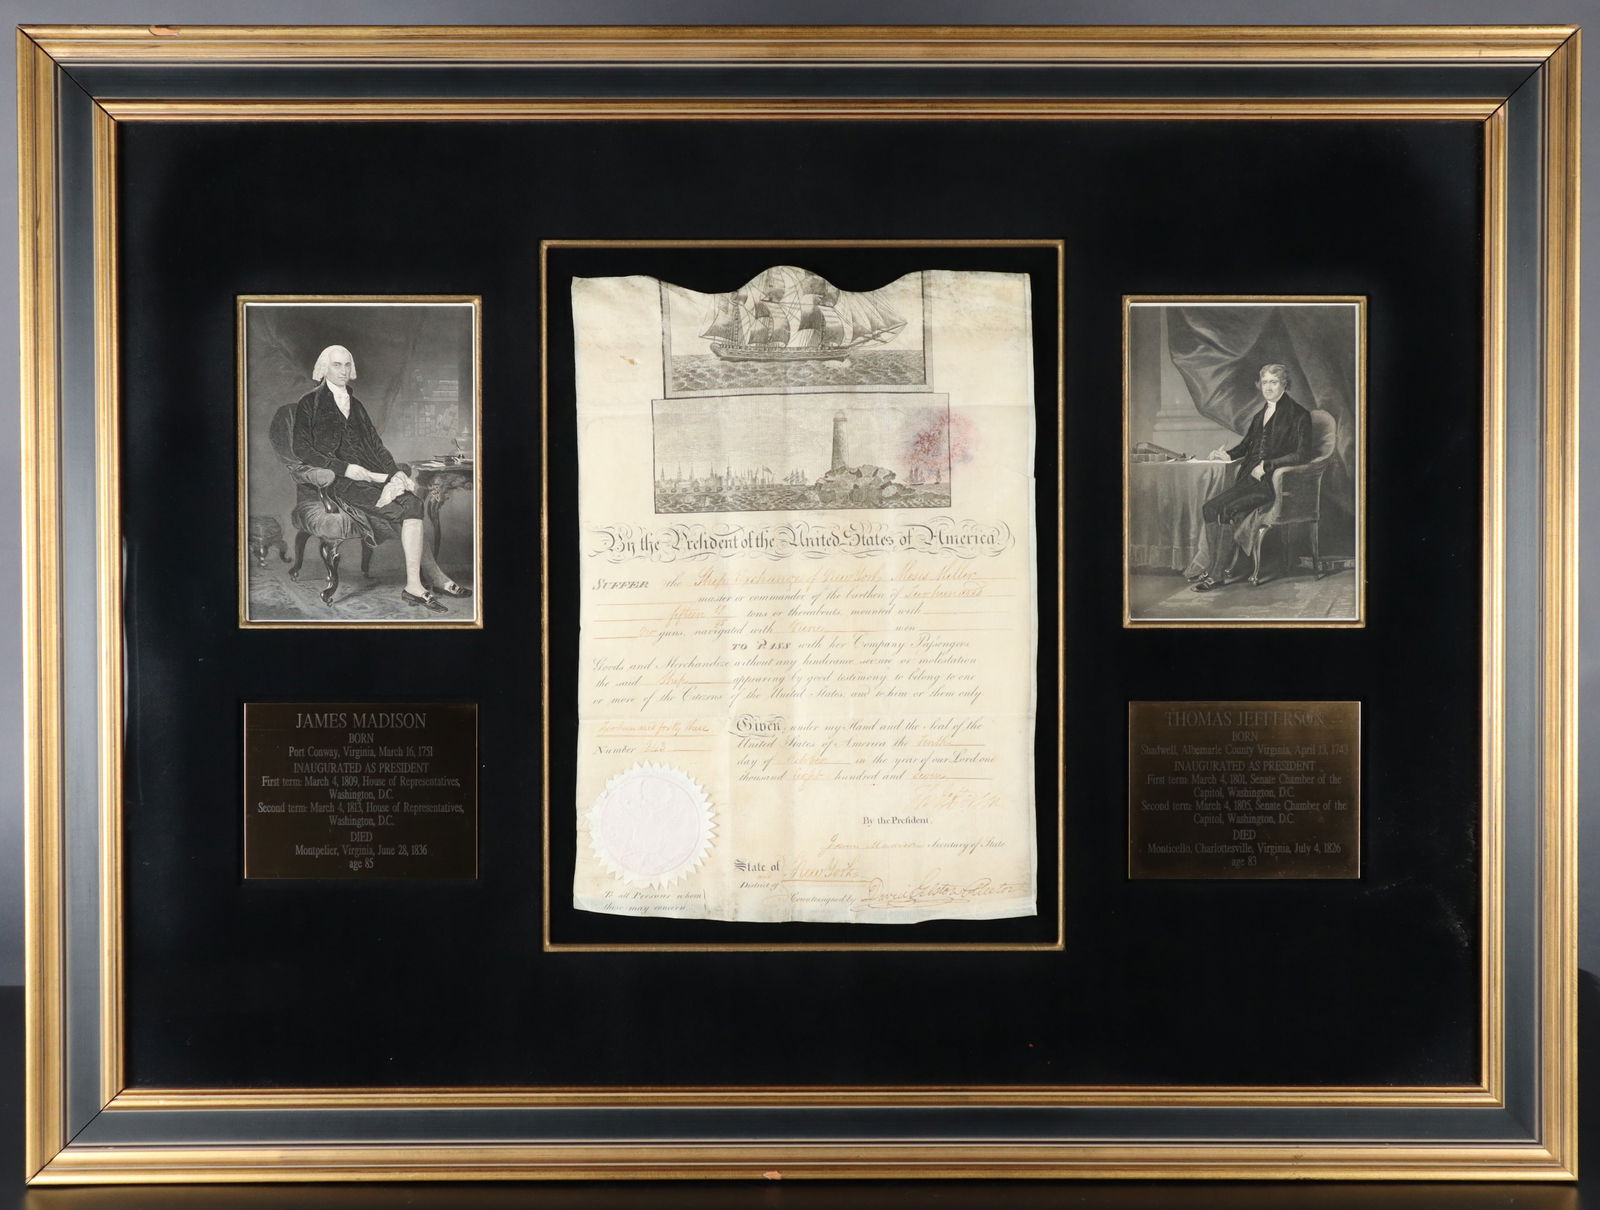 By the President of the United States of America
SUFFER the Ship Exchange of New York Moses
master or commander of the burthen of two hundred
fifteen tons or thereabouts, mounted with
no guns, navigated with men
TO PASS with her Company Passengers
Goods and Merchandize without any hinderance seizure or molestation
the said Ship appearing by good testimony to belong to one
or more of the Citizens of the United States, and to him or them only
two hundred forty three
Number 243
Given under my Hand and the Seal of the
United States of America the tenth
day of October in the year of our Lord one
thousand eight hundred and seven
By the President,
James Madison Secretary of State
State of
and
District of
New York
Countersigned by David Gelston Collector
To all Persons whom
these may concern
JAMES MADISON
BORN
Port Conway, Virginia, March 16, 1751
INAUGURATED AS PRESIDENT
First term: March 4, 1809, House of Representatives,
Washington, D.C.
Second term: March 4, 1813, House of Representatives,
Washington, D.C.
DIED
Montpelier, Virginia, June 28, 1836
age 85
THOMAS JEFFERSON
BORN
Shadwell, Albemarle County Virginia, April 13, 1743
INAUGURATED AS PRESIDENT
First term: March 4, 1801, Senate Chamber of the
Capitol, Washington, D.C.
Second term: March 4, 1805, Senate Chamber of the
Capitol, Washington, D.C.
DIED
Monticello, Charlottesville, Virginia, July 4, 1826
age 83